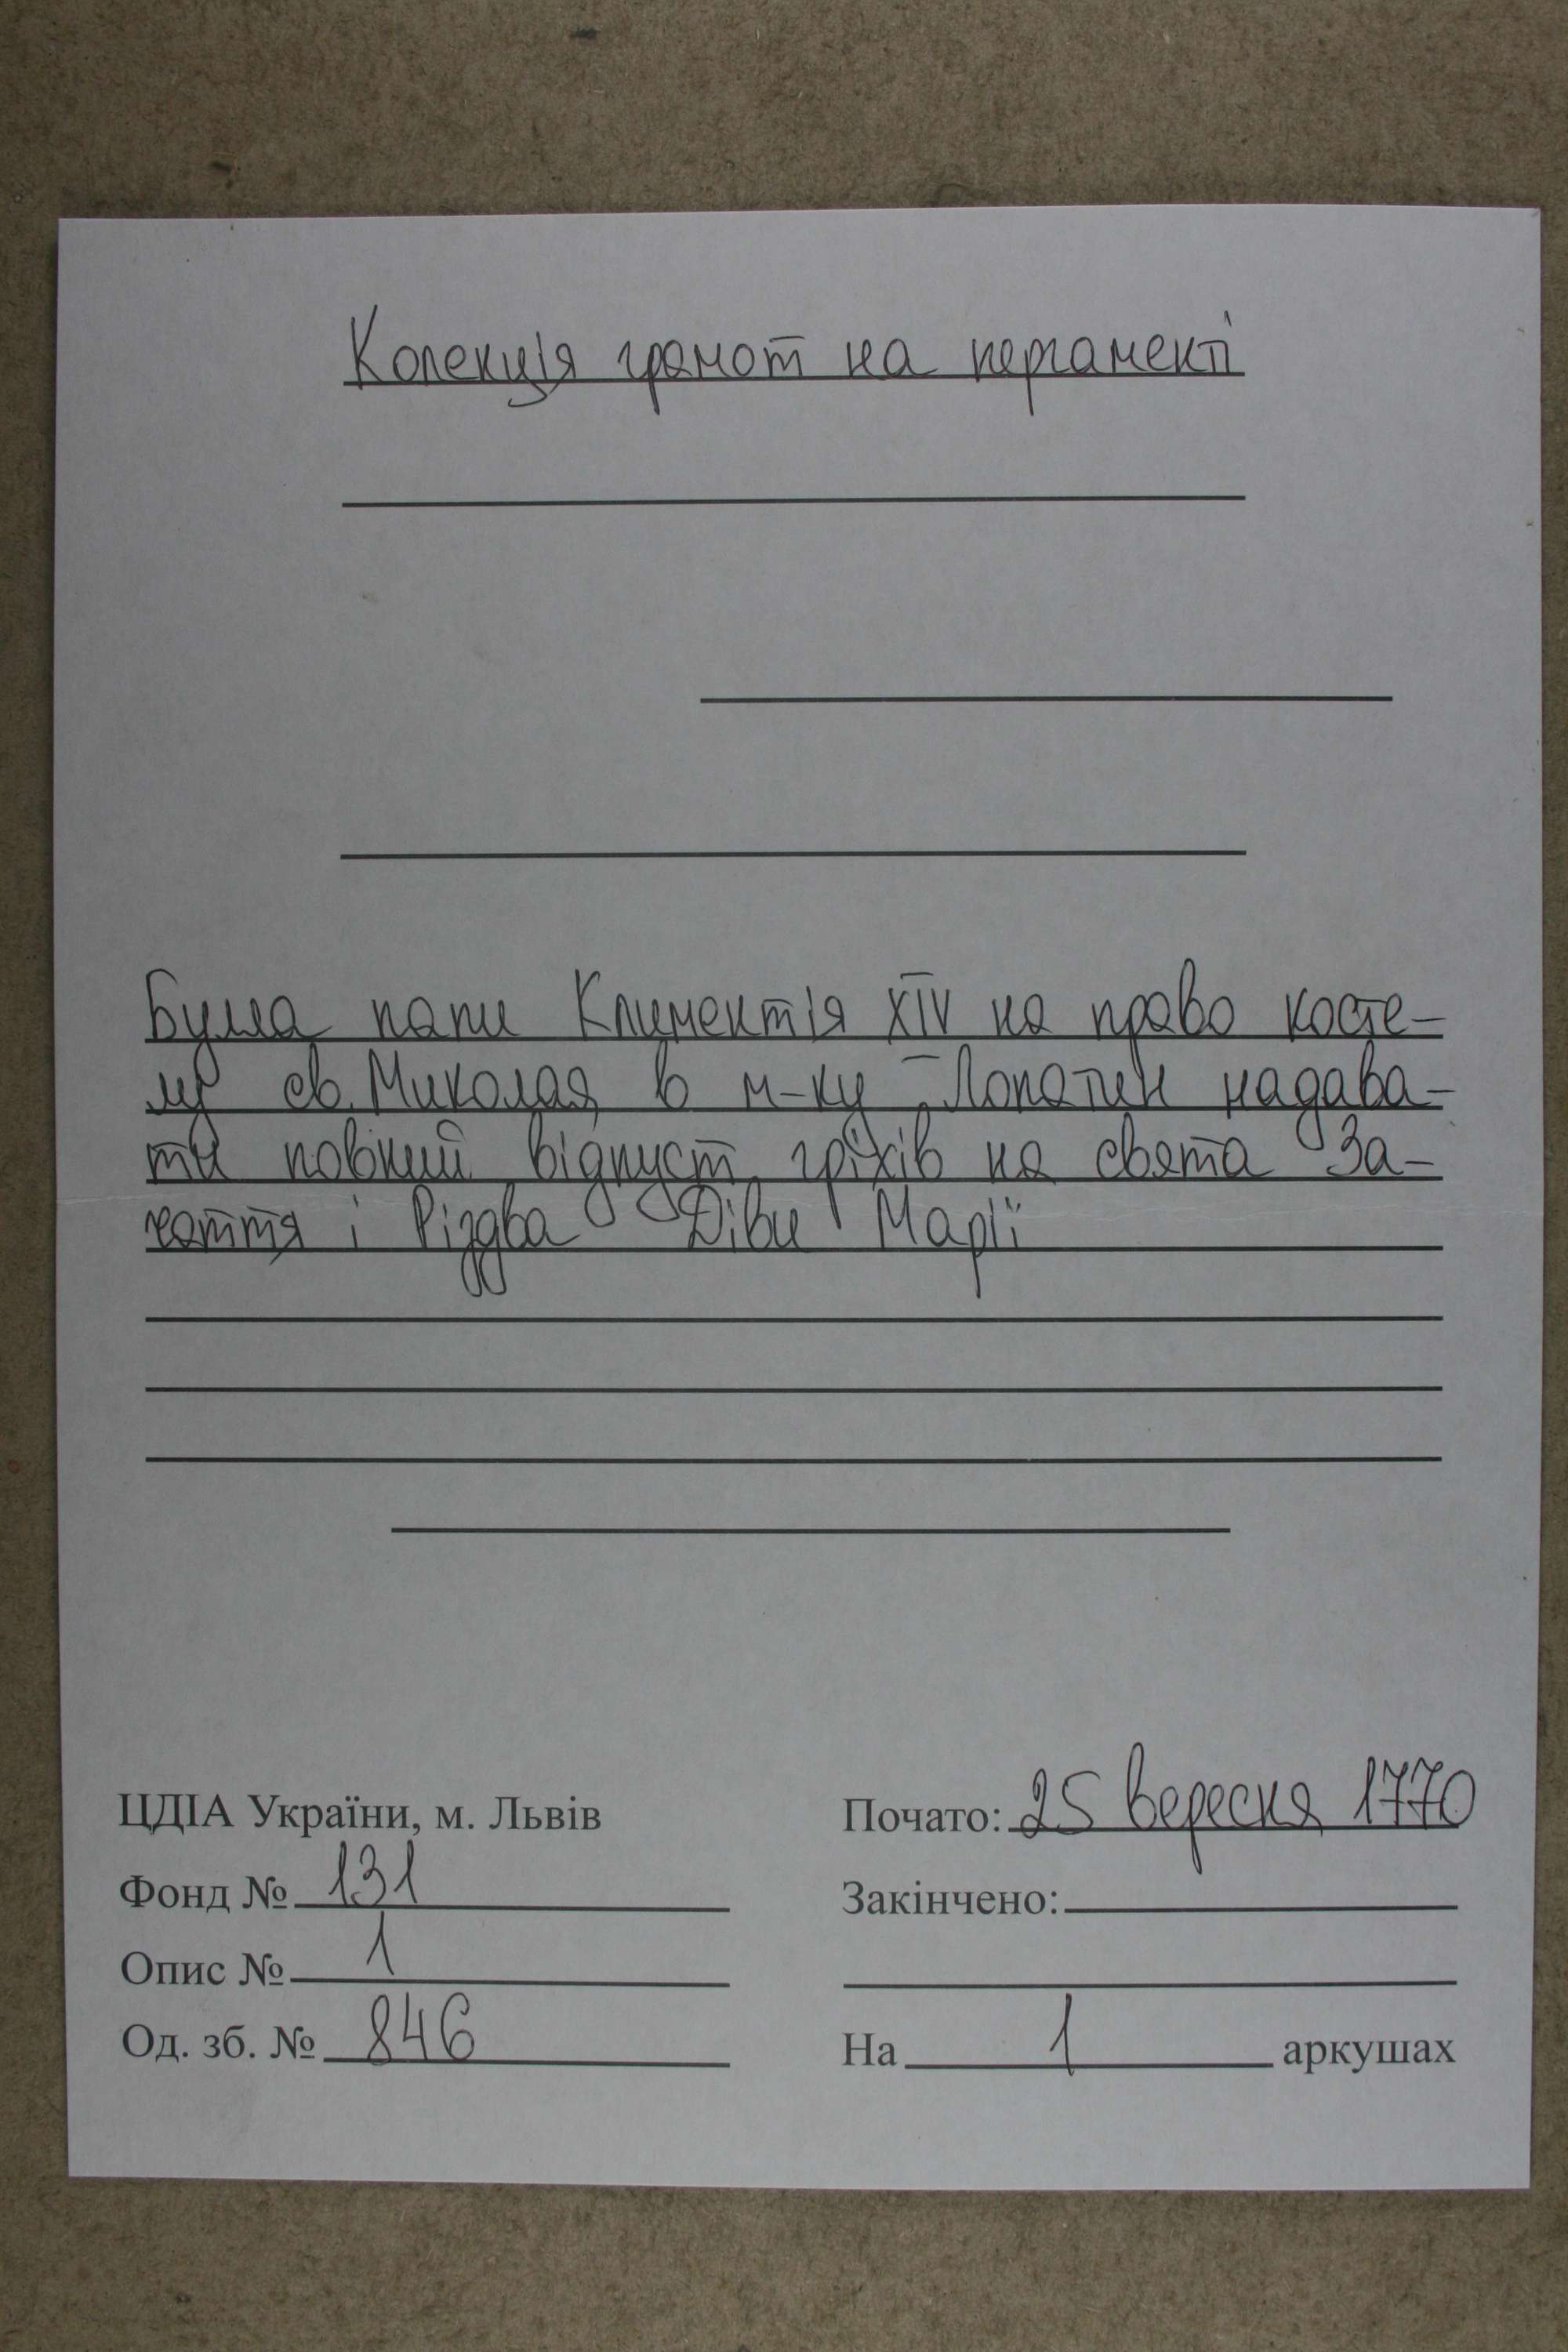 Колекція грамот на пергаменті
Булла папи Климентія XIV на право косте-
лу св. Миколая в м-ку Лопатин надава-
ти повний відпуст гріхів на свята За-
чаття і Різдва Діви Марії
ЦДІА України, м. Львів
Почато: 25 вересня 1770
Фонд № 131
Закінчено:
Опис № 1
Од. зб. № 846
На 1 аркушах